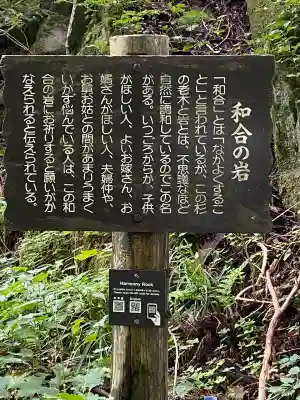 和合の岩
「和合」とは「なかよくするこ
と」と言われているが、この杉
の老木と岩とは、不思議なほど
自然に調和しているのでこの名
がある。いつころからか、子供
がほしい人、よいお嫁さん、お
婿さんがほしい人、夫婦仲や、
お舅お姑との間があまりうまく
いかず悩んでいる人は、この和
合の岩にお祈りすると願いがか
なえられると伝えられている。
Harmony Rock
日本語
English